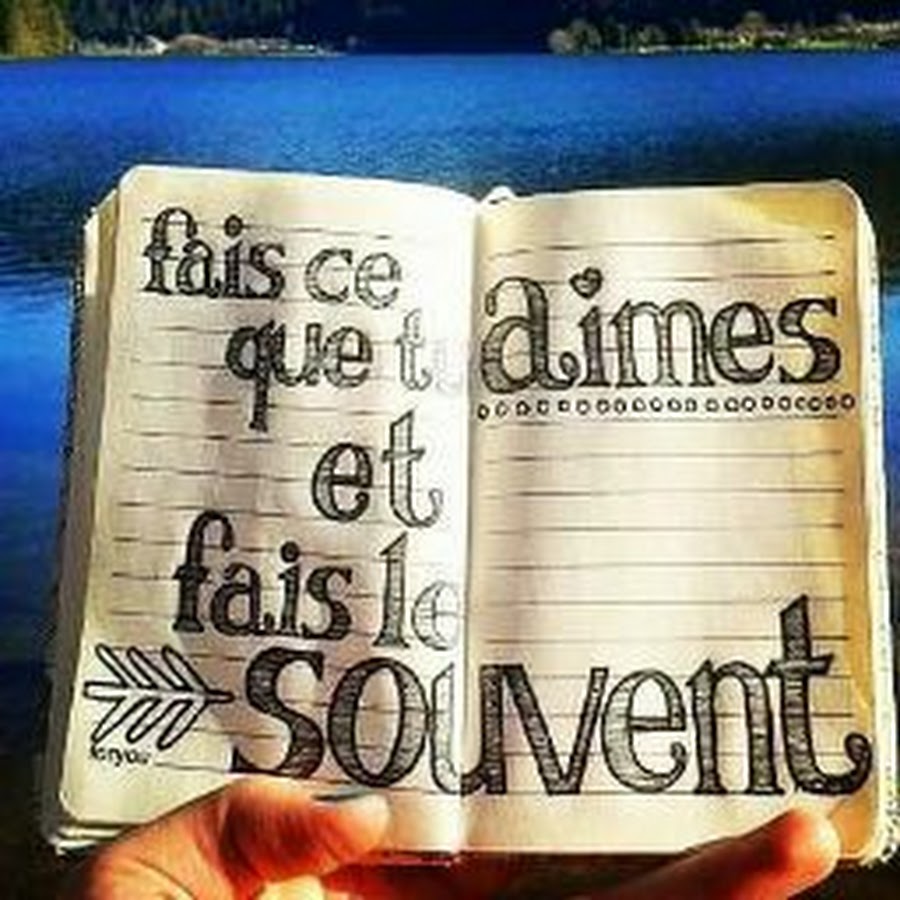 fais ce
que tu aimes
et
fais le
souvent
for you